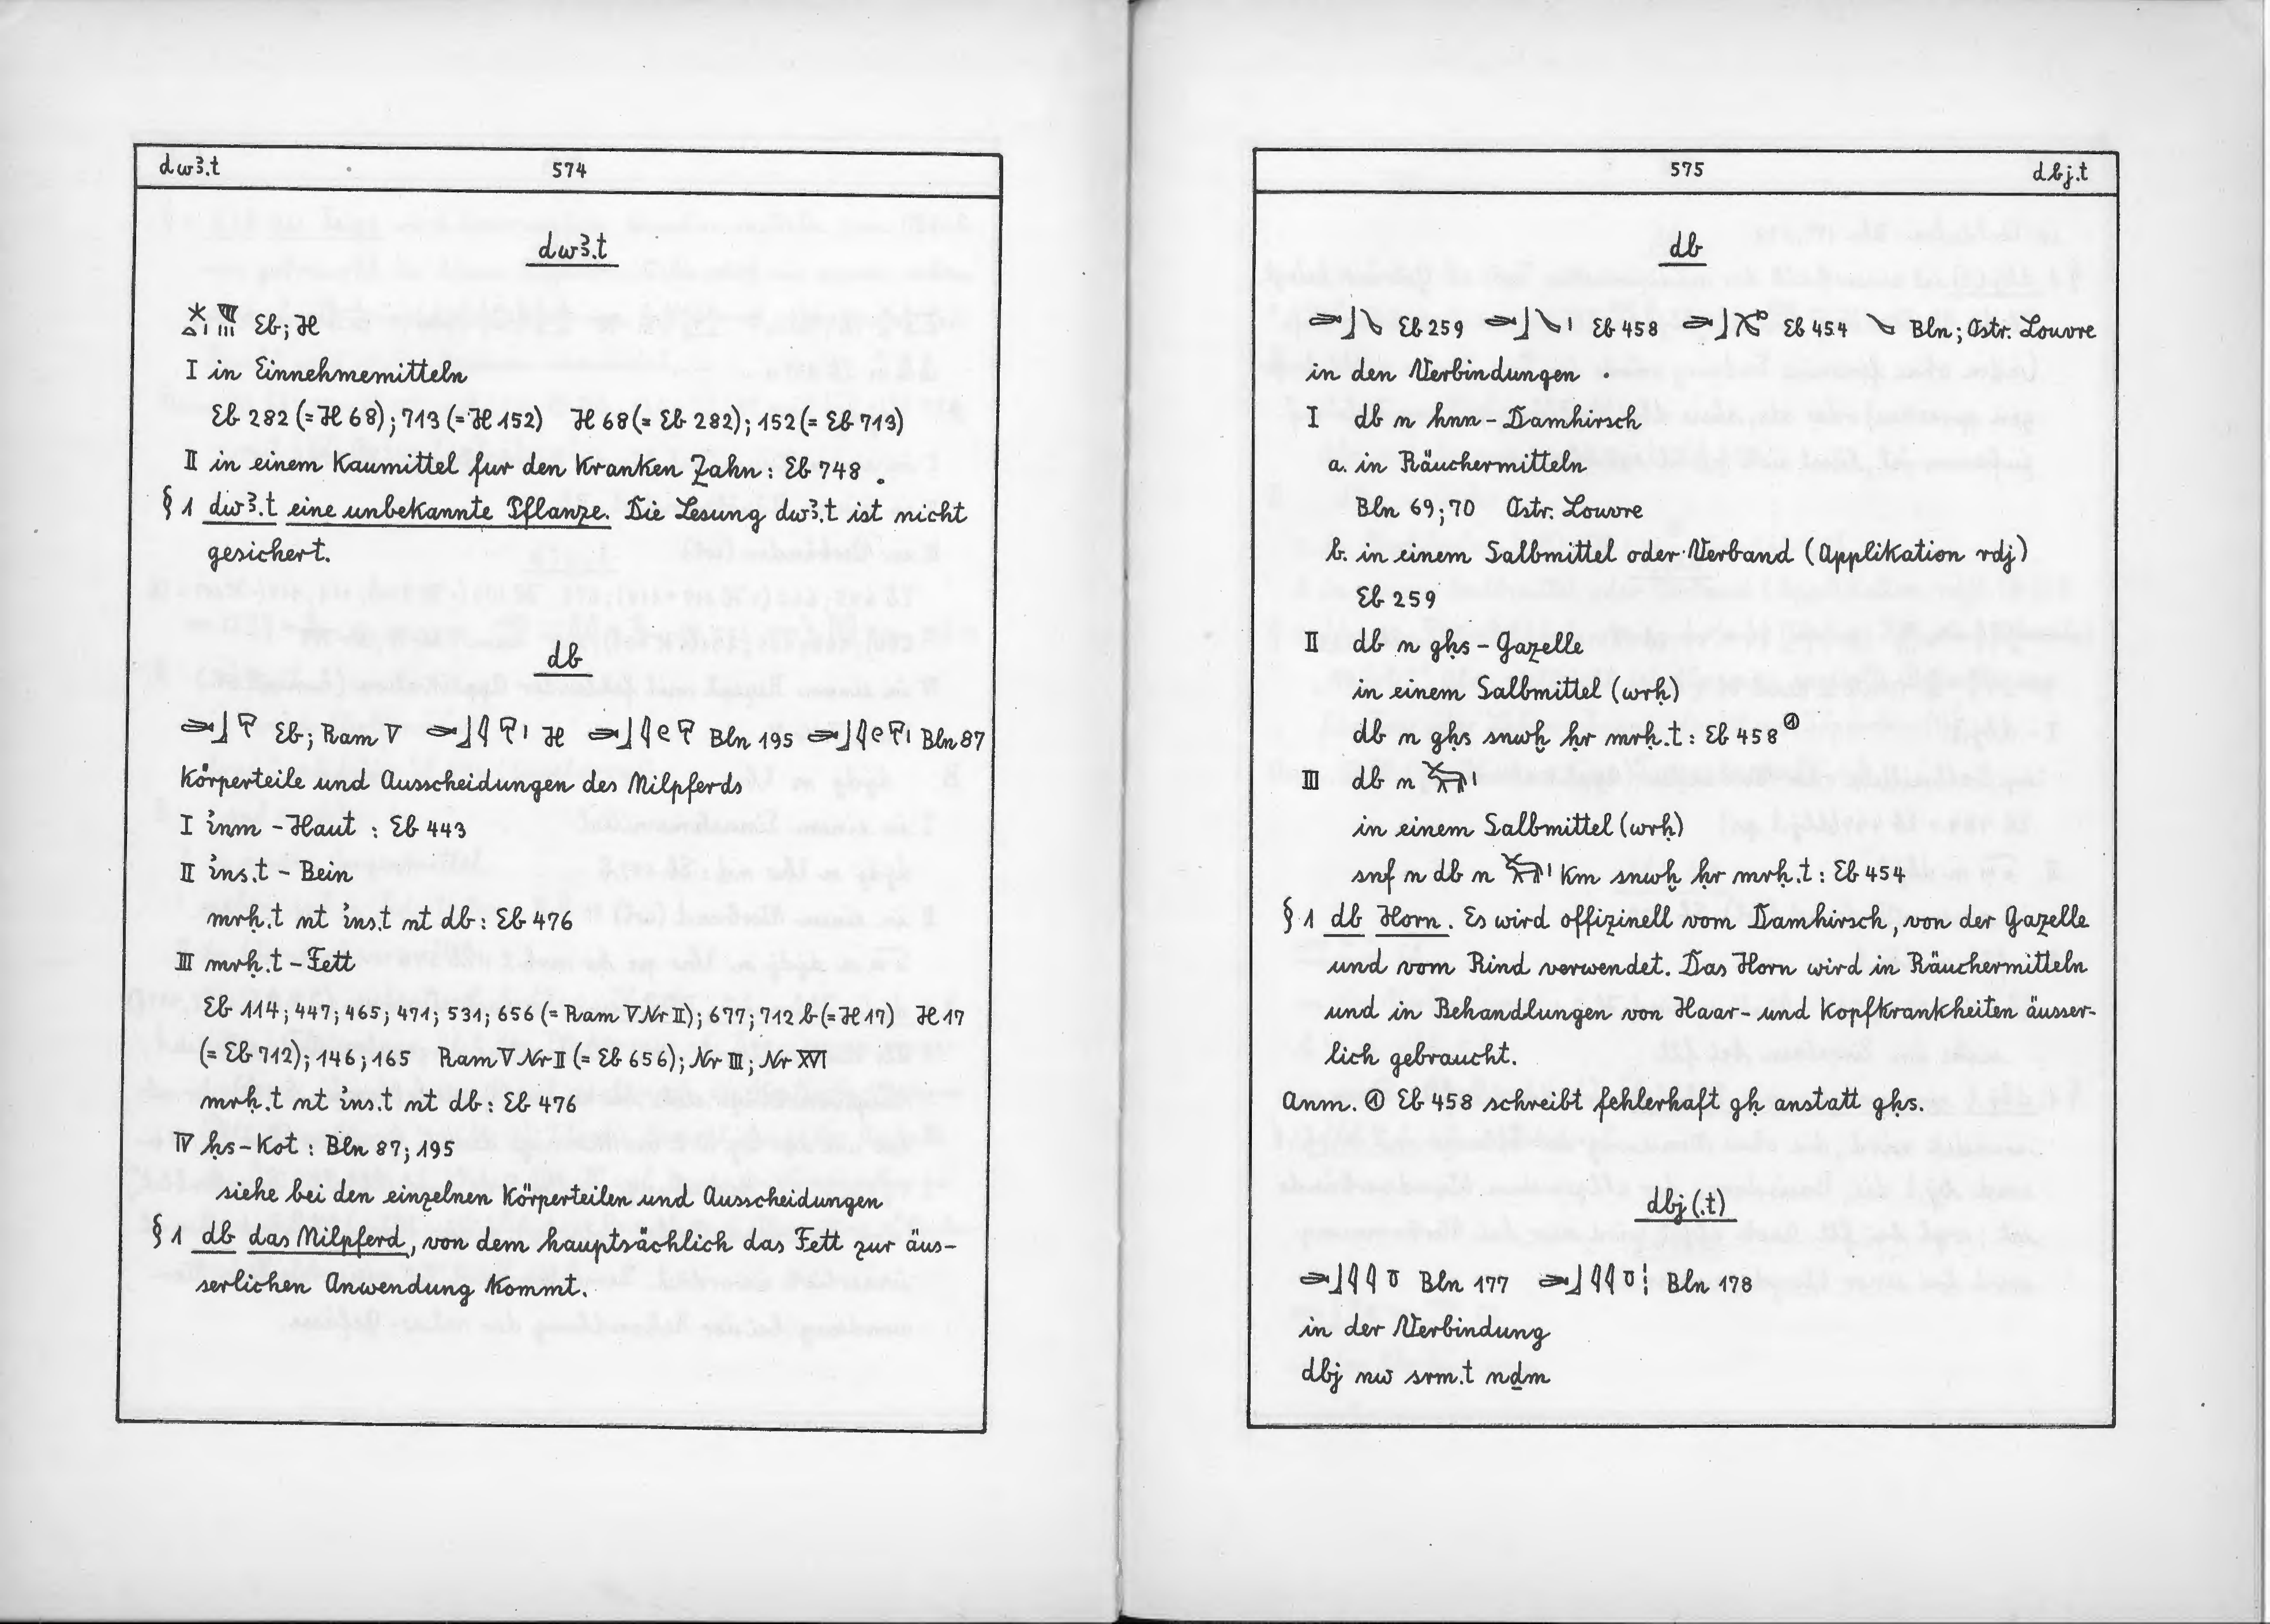 dwꜣ.t 574
dwꜣ.t
Eb; H
I in Einnehmemitteln
Eb 282 (= H 68); 713 (= H 152) H 68 (= Eb 282); 152 (= Eb 713)
II in einem Kaumittel fur den Kranken Zahn: Eb 748.
§ 1 dwꜣ.t eine unbekannte Pflanze. Die Lesung dwꜣ.t ist nicht
gesichert.
db
Eb; Ram V H Bln 195 Bln 87
Körperteile und Ausscheidungen des Nilpferds
I i҆nm - Haut : Eb 443
II i҆ns.t - Bein
mrḥ.t nt i҆ns.t nt db: Eb 476
III mrḥ.t - Fett
Eb 114; 447; 465; 471; 531; 656 (= Ram V Nr II); 677; 712 b (= H 17) H 17
(= Eb 712); 146; 165 Ram V Nr II (= Eb 656); Nr III; Nr XVI
mrḥ.t nt i҆ns.t nt db: Eb 476
IV ḥs - Kot : Bln 87; 195
siehe bei den einzelnen Körperteilen und Ausscheidungen
§ 1 db das Nilpferd, von dem hauptsächlich das Fett zur äus-
serlichen Anwendung kommt.
575 dbj.t
db
Eb 259 Eb 458 Eb 454 Bln; Ostr. Louvre
in den Verbindungen
I db n hnn - Damhirsch
a. in Räuchermitteln
Bln 69; 70 Ostr. Louvre
b. in einem Salbmittel oder Verband (Applikation rdj)
Eb 259
II db n gḥs - Gazelle
in einem Salbmittel (wrḥ)
db n gḥs snwḫ ḥr mrḥ.t: Eb 458 ①
III db n
in einem Salbmittel (wrḥ)
snf n db n km snwḫ ḥr mrḥ.t: Eb 454
§ 1 db Horn. Es wird offizinell vom Damhirsch, von der Gazelle
und vom Rind verwendet. Das Horn wird in Räuchermitteln
und in Behandlungen von Haar- und Kopfkrankheiten äusser-
lich gebraucht.
Anm. ① Eb 458 schreibt fehlerhaft gḥ anstatt gḥs.
dbj(.t)
Bln 177 Bln 178
in der Verbindung
dbj nw srm.t nḏm